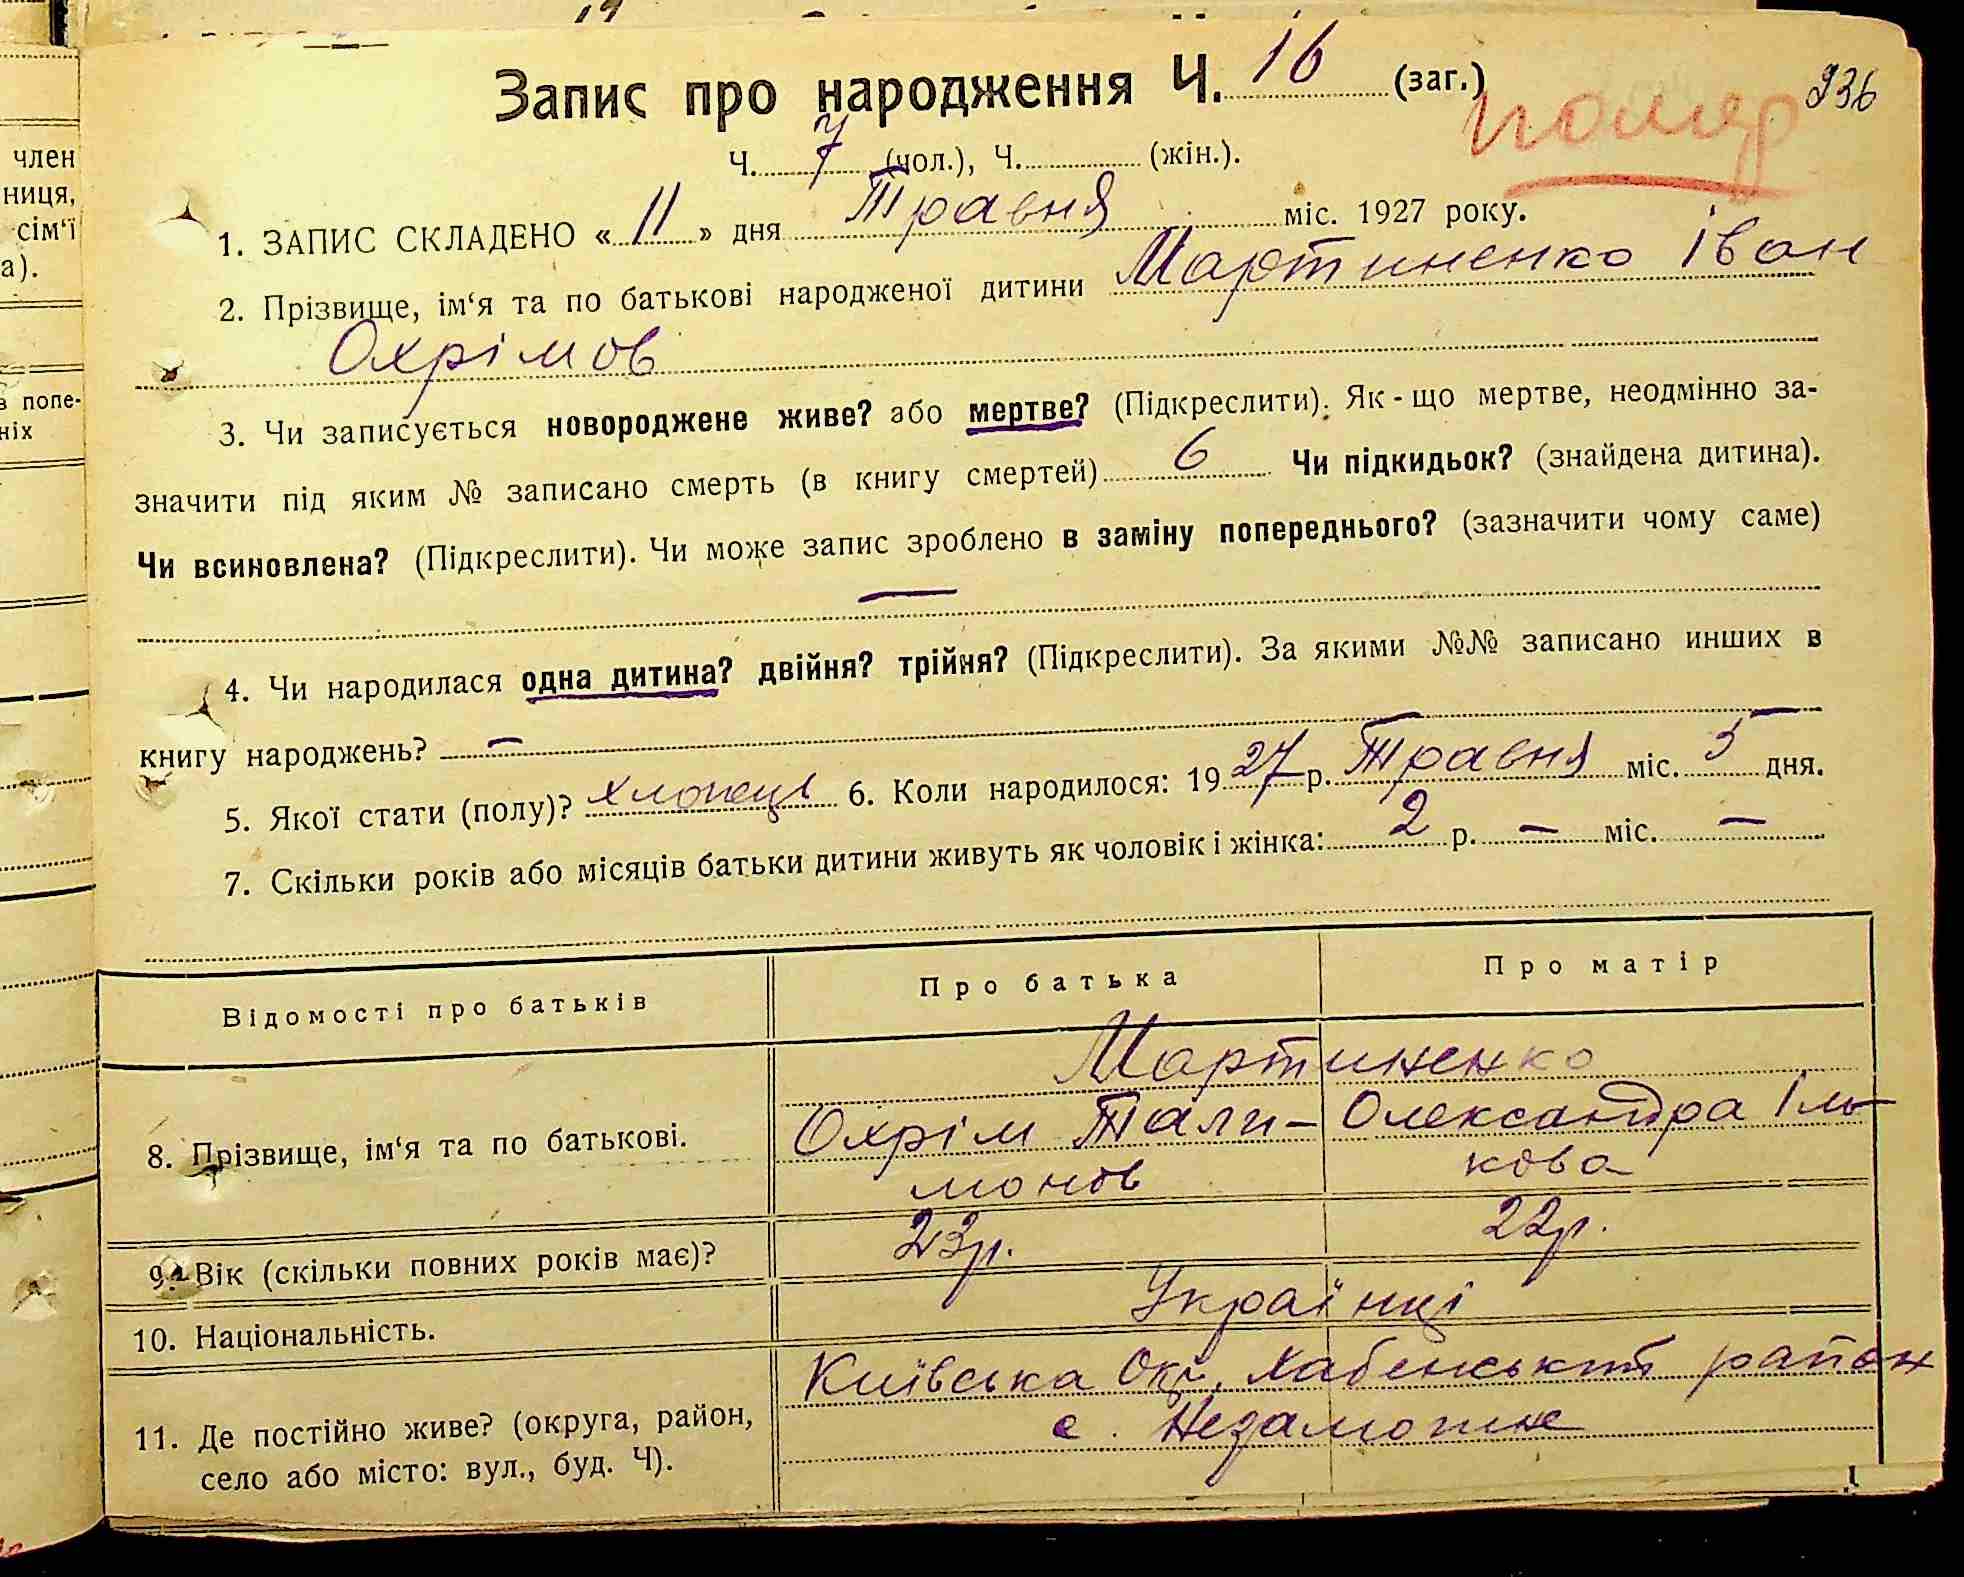 член
ниця,
сім‘ї
а).
в попе-
ніх
Запис про народження Ч. 16 (заг.)
помер
936
Ч. 7 (чол.), Ч. (жін.).
1. ЗАПИС СКЛАДЕНО « 11 » дня Травня міс. 1927 року.
2. Прізвище, ім‘я та по батькові народженої дитини Мартиненко Іван
Охрімов
3. Чи записується новороджене живе? або мертве? (Підкреслити). Як-що мертве, неодмінно за-
значити під яким № записано смерть (в книгу смертей) 6 Чи підкидьок? (знайдена дитина).
Чи всиновлена? (Підкреслити). Чи може запис зроблено в заміну попереднього? (зазначити чому саме)
—
4. Чи народилася одна дитина? двійня? трійня? (Підкреслити). За якими №№ записано инших в
книгу народжень? —
5. Якої стати (полу)? хлопець 6. Коли народилося: 1927 р. Травня міс. 5 дня.
7. Скільки років або місяців батьки дитини живуть як чоловік і жінка: 2 р. — міс. —
Відомості про батьків Про батька Про матір
Мартиненко
8. Прізвище, ім‘я та по батькові. Охрім Тали- Олександра Іль-
монов кова
9. Вік (скільки повних років має)? 23р. 22р.
10. Національність. Українці
11. Де постійно живе? (округа, район, Київська Окр. Хабенський район
село або місто: вул., буд. Ч). с. Незаможне